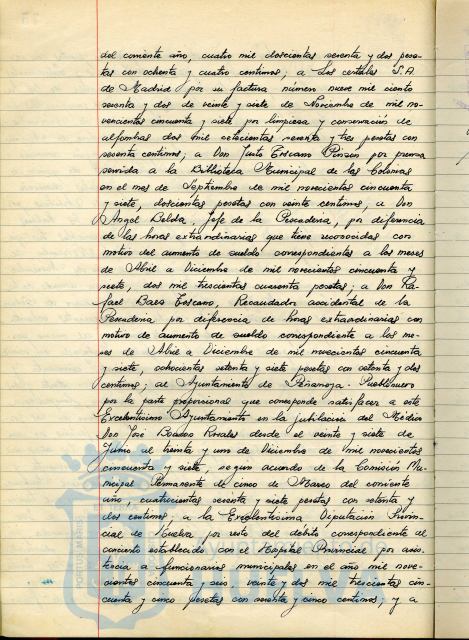 del corriente año, cuatro mil doscientas sesenta y dos pese-
tas con ochenta y cuatro centimos; a Los certales S.A.
de Madrid por su factura número nueve mil ciento
sesenta y dos de veinte y siete de Noviembre de mil no-
vecientos cincuenta y siete por limpieza y conservación de
alfombras dos mil setecientas sesenta y tres pesetas con
sesenta centimos; a Don Justo Toscano Pinzón por prensa
servida a la Biblioteca Municipal de las Colonias
en el mes de Septiembre de mil novecientos cincuenta
y siete, doscientas pesetas con veinte centimos, a Don
Angel Belda, Jefe de la Pescaderia, por diferencia
de las horas extraordinarias que tiene reconocidas con
motivo del aumento de sueldo correspondientes a los meses
de Abril a Diciembre de mil novecientos cincuenta y
siete, dos mil trescientas cuarenta pesetas; a Don Ra-
fael Baez Toscano, Recaudador accidental de la
Pescaderia por diferencia de horas extraordinarias con
motivo de aumento de sueldo correspondiente a los me-
ses de Abril a Diciembre de mil novecientos cincuenta
y siete, ochocientas setenta y siete pesetas con setenta y dos
centimos; al Ayuntamiento de Peñarroya-Pueblonuevo
por la parte proporcional que corresponde satisfacer a este
Excelentisimo Ayuntamiento en la jubilación del Médico
Don José Rosales desde el veinte y siete de
Junio al treinta y uno de Diciembre de mil novecientos
cincuenta y siete, según acuerdo de la Comisión Mu-
nicipal Permanente de cinco de Marzo del corriente
año, cuatrocientas sesenta y siete pesetas con setenta y
dos centimos, a la Excelentisima Diputación Provin-
cial de Huelva por resto del débito correspondiente al
concierto establecido con el Hospital Provincial por asis-
tencia a funcionarios municipales en el año mil nove-
cientos cincuenta y seis, veinte y dos mil trescientas cin-
cuenta y cinco pesetas con sesenta y cinco centimos, y a